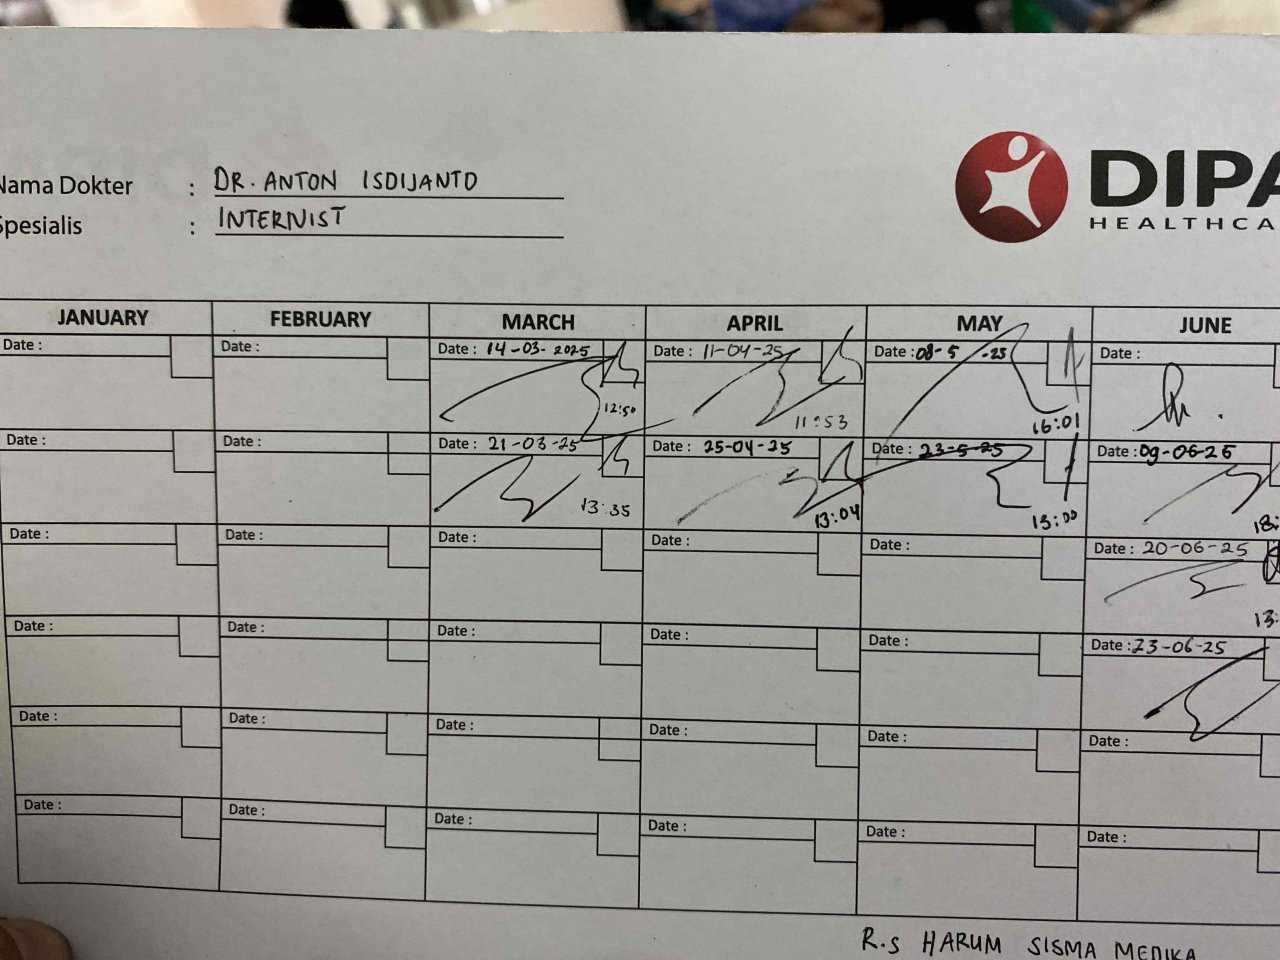 Nama Dokter : DR. ANTON ISDIJANTO
Spesialis : INTERNIST
DIPA
HEALTHCA
JANUARY FEBRUARY MARCH APRIL MAY JUNE
Date : Date : Date : 14-03-2025 Date : 11-04-25 Date : 08-5-25 Date :
12:50 11:53 16:01
Date : Date : Date : 21-03-25 Date : 25-04-25 Date : 23-5-25 Date : 09-06-25
13:35 13:04 13:00 18:
Date : Date : Date : Date : Date : Date : 20-06-25
13:
Date : Date : Date : Date : Date : Date : 23-06-25
Date : Date : Date : Date : Date : Date :
Date : Date : Date : Date : Date : Date :
R.S HARUM SISMA MEDIKA